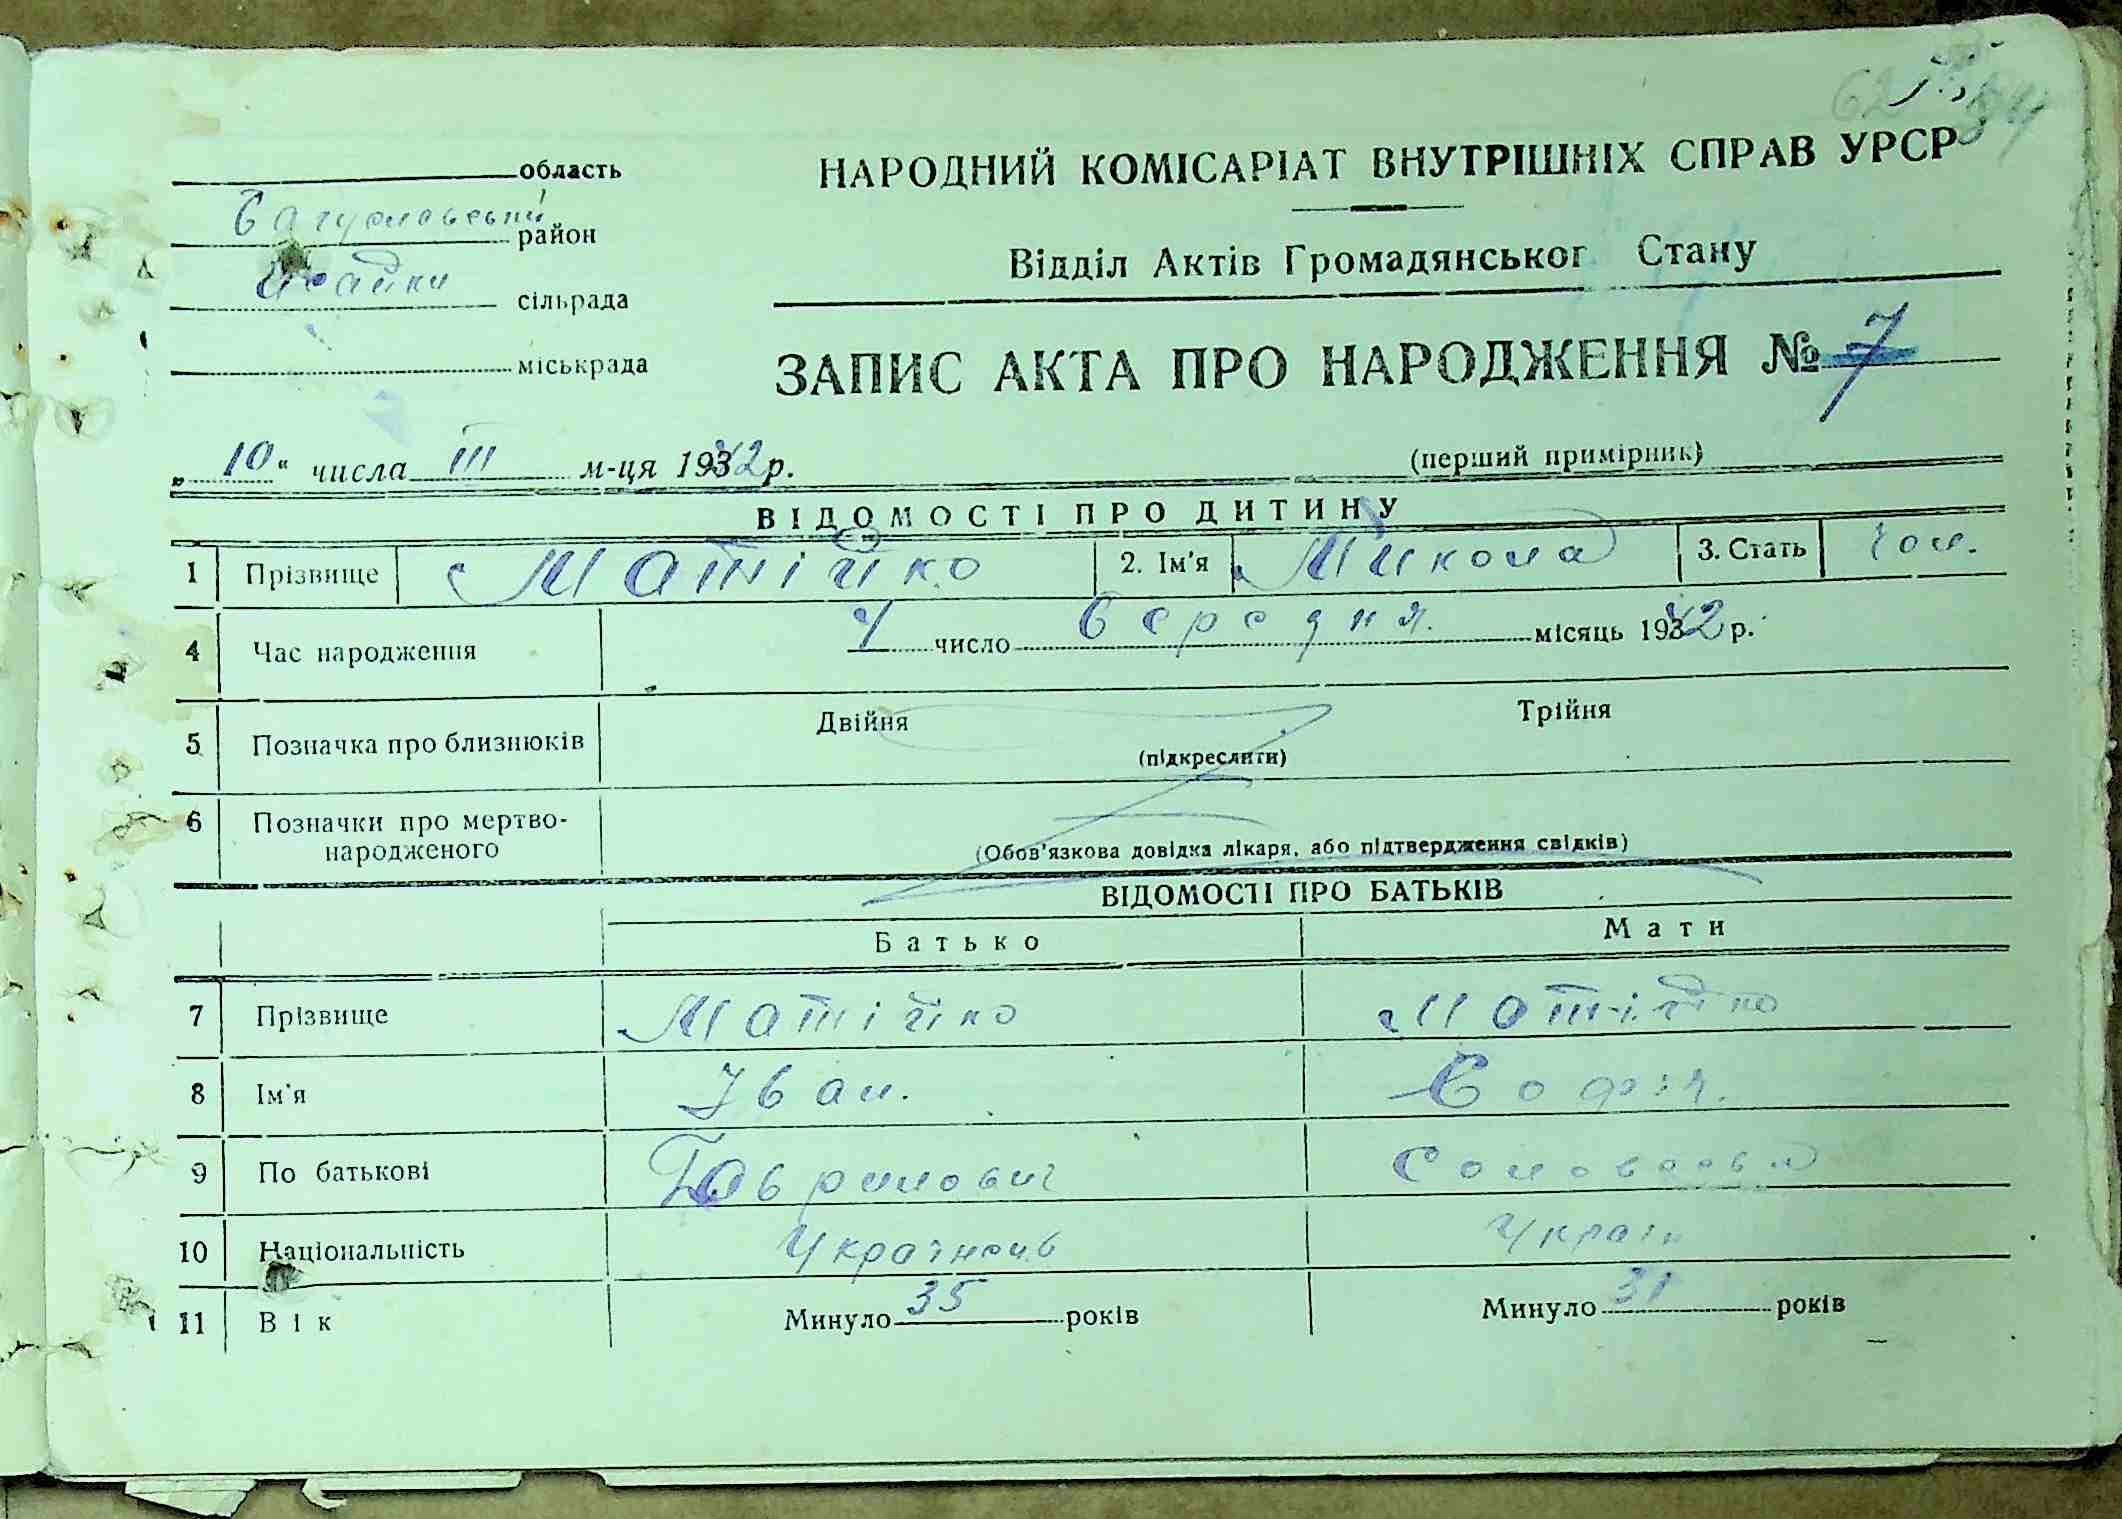 область
Богуславський район
Исайки сільрада
міськрада
НАРОДНИЙ КОМІСАРІАТ ВНУТРІШНІХ СПРАВ УРСР
Відділ Актів Громадянського Стану
ЗАПИС АКТА ПРО НАРОДЖЕННЯ № 7
„10“ числа III м-ця 1942 р.
(перший примірник)
ВІДОМОСТІ ПРО ДИТИНУ
1 Прізвище Матійко 2. Ім'я Микола 3. Стать чол.
4 Час народження 4 число березня місяць 1942 р.
5 Позначка про близнюків Двійня Трійня
(підкреслити)
6 Позначки про мертво-
народженого
(Обов'язкова довідка лікаря, або підтвердження свідків)
ВІДОМОСТІ ПРО БАТЬКІВ
Батько Мати
7 Прізвище Матійко Матійко
8 Ім'я Іван. Софія.
9 По батькові Гаврилович
10 Національність Українець Україн
11 Вік Минуло 35 років Минуло 31 років